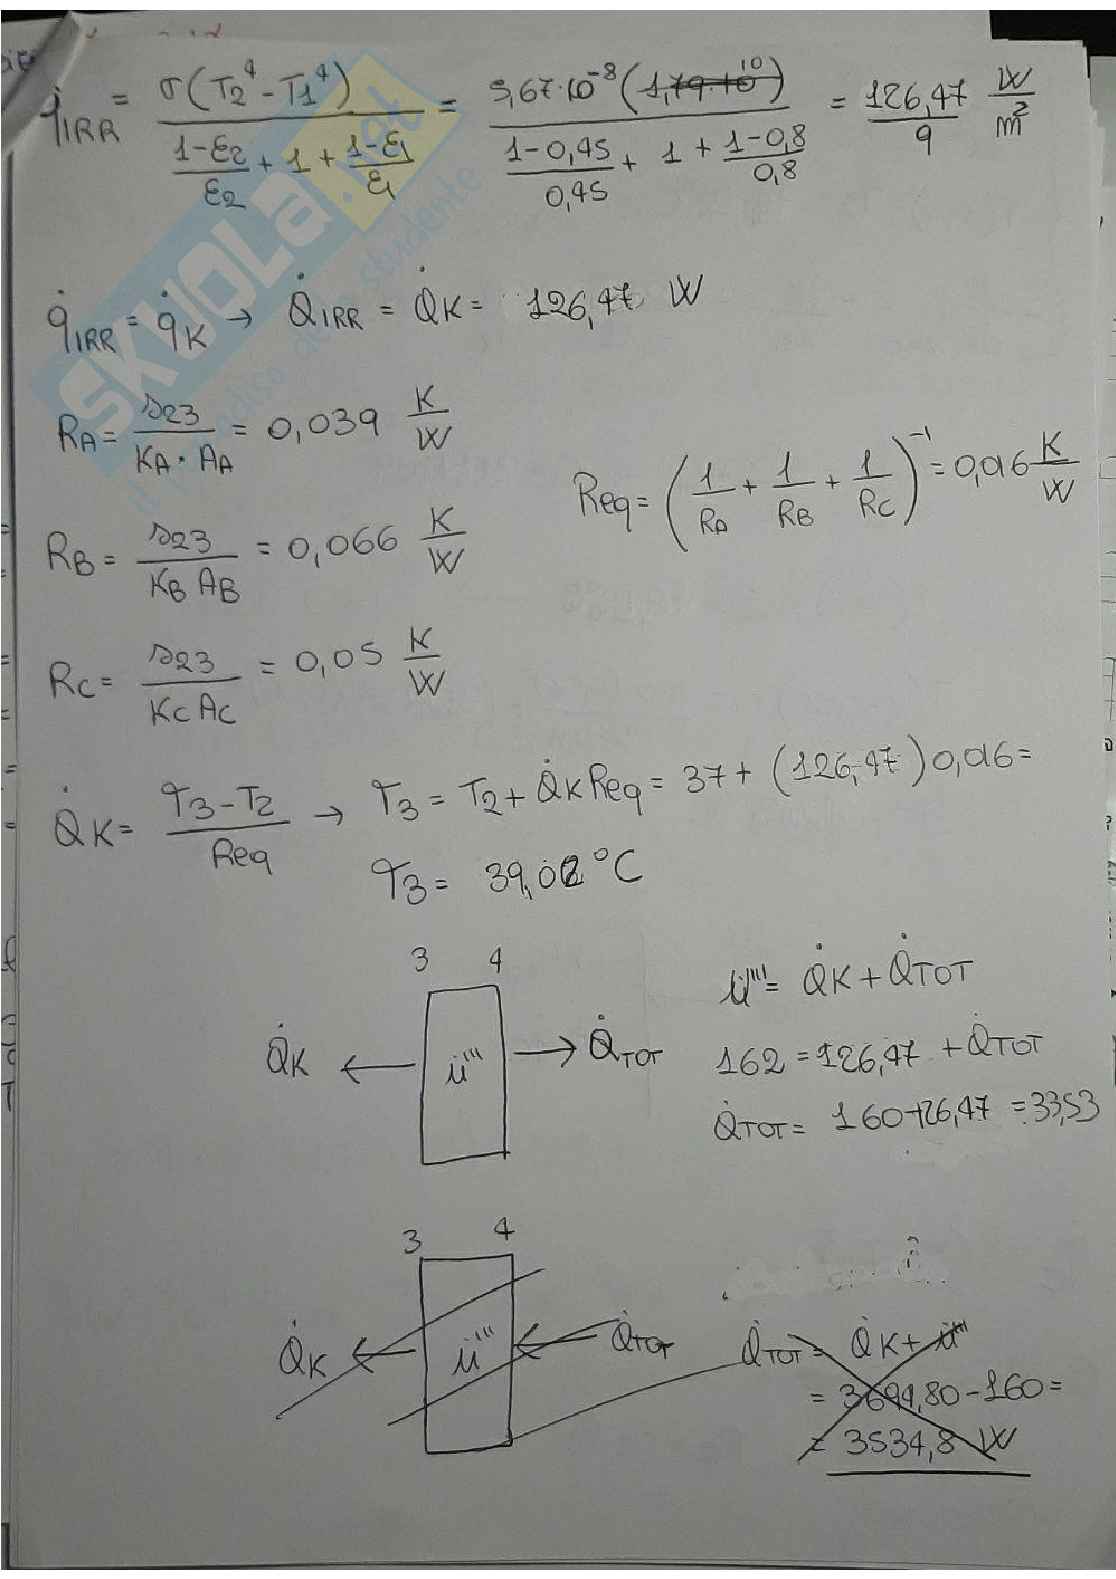 q̇IRR = σ(T2⁴ - T1⁴) / (1-ε2/ε2 + 1 + 1-ε1/ε1) = 5,67·10⁻⁸ (1,79·10¹⁰) / (1-0,45/0,45 + 1 + 1-0,8/0,8) = 126,47/9 W/m²
q̇IRR = q̇K → Q̇IRR = Q̇K = 126,47 W
RA = s23 / KA · AA = 0,039 K/W
Req = (1/RA + 1/RB + 1/RC)⁻¹ = 0,016 K/W
RB = s23 / KB AB = 0,066 K/W
RC = s23 / KC AC = 0,05 K/W
Q̇K = T3-T2 / Req → T3 = T2 + Q̇K Req = 37 + (126,47) 0,016 =
T3 = 39,02 °C
3 4
Q̇K ← u̇''' → Q̇TOT
u̇''' = Q̇K + Q̇TOT
162 = 126,47 + Q̇TOT
Q̇TOT = 160-126,47 = 33,53
3 4
Q̇K ← u̇''' ← Q̇TOT
Q̇TOT = Q̇K + u̇'''
= 3694,80 - 160 =
= 3534,8 W
SKUOLA.net
il paradiso dello studente